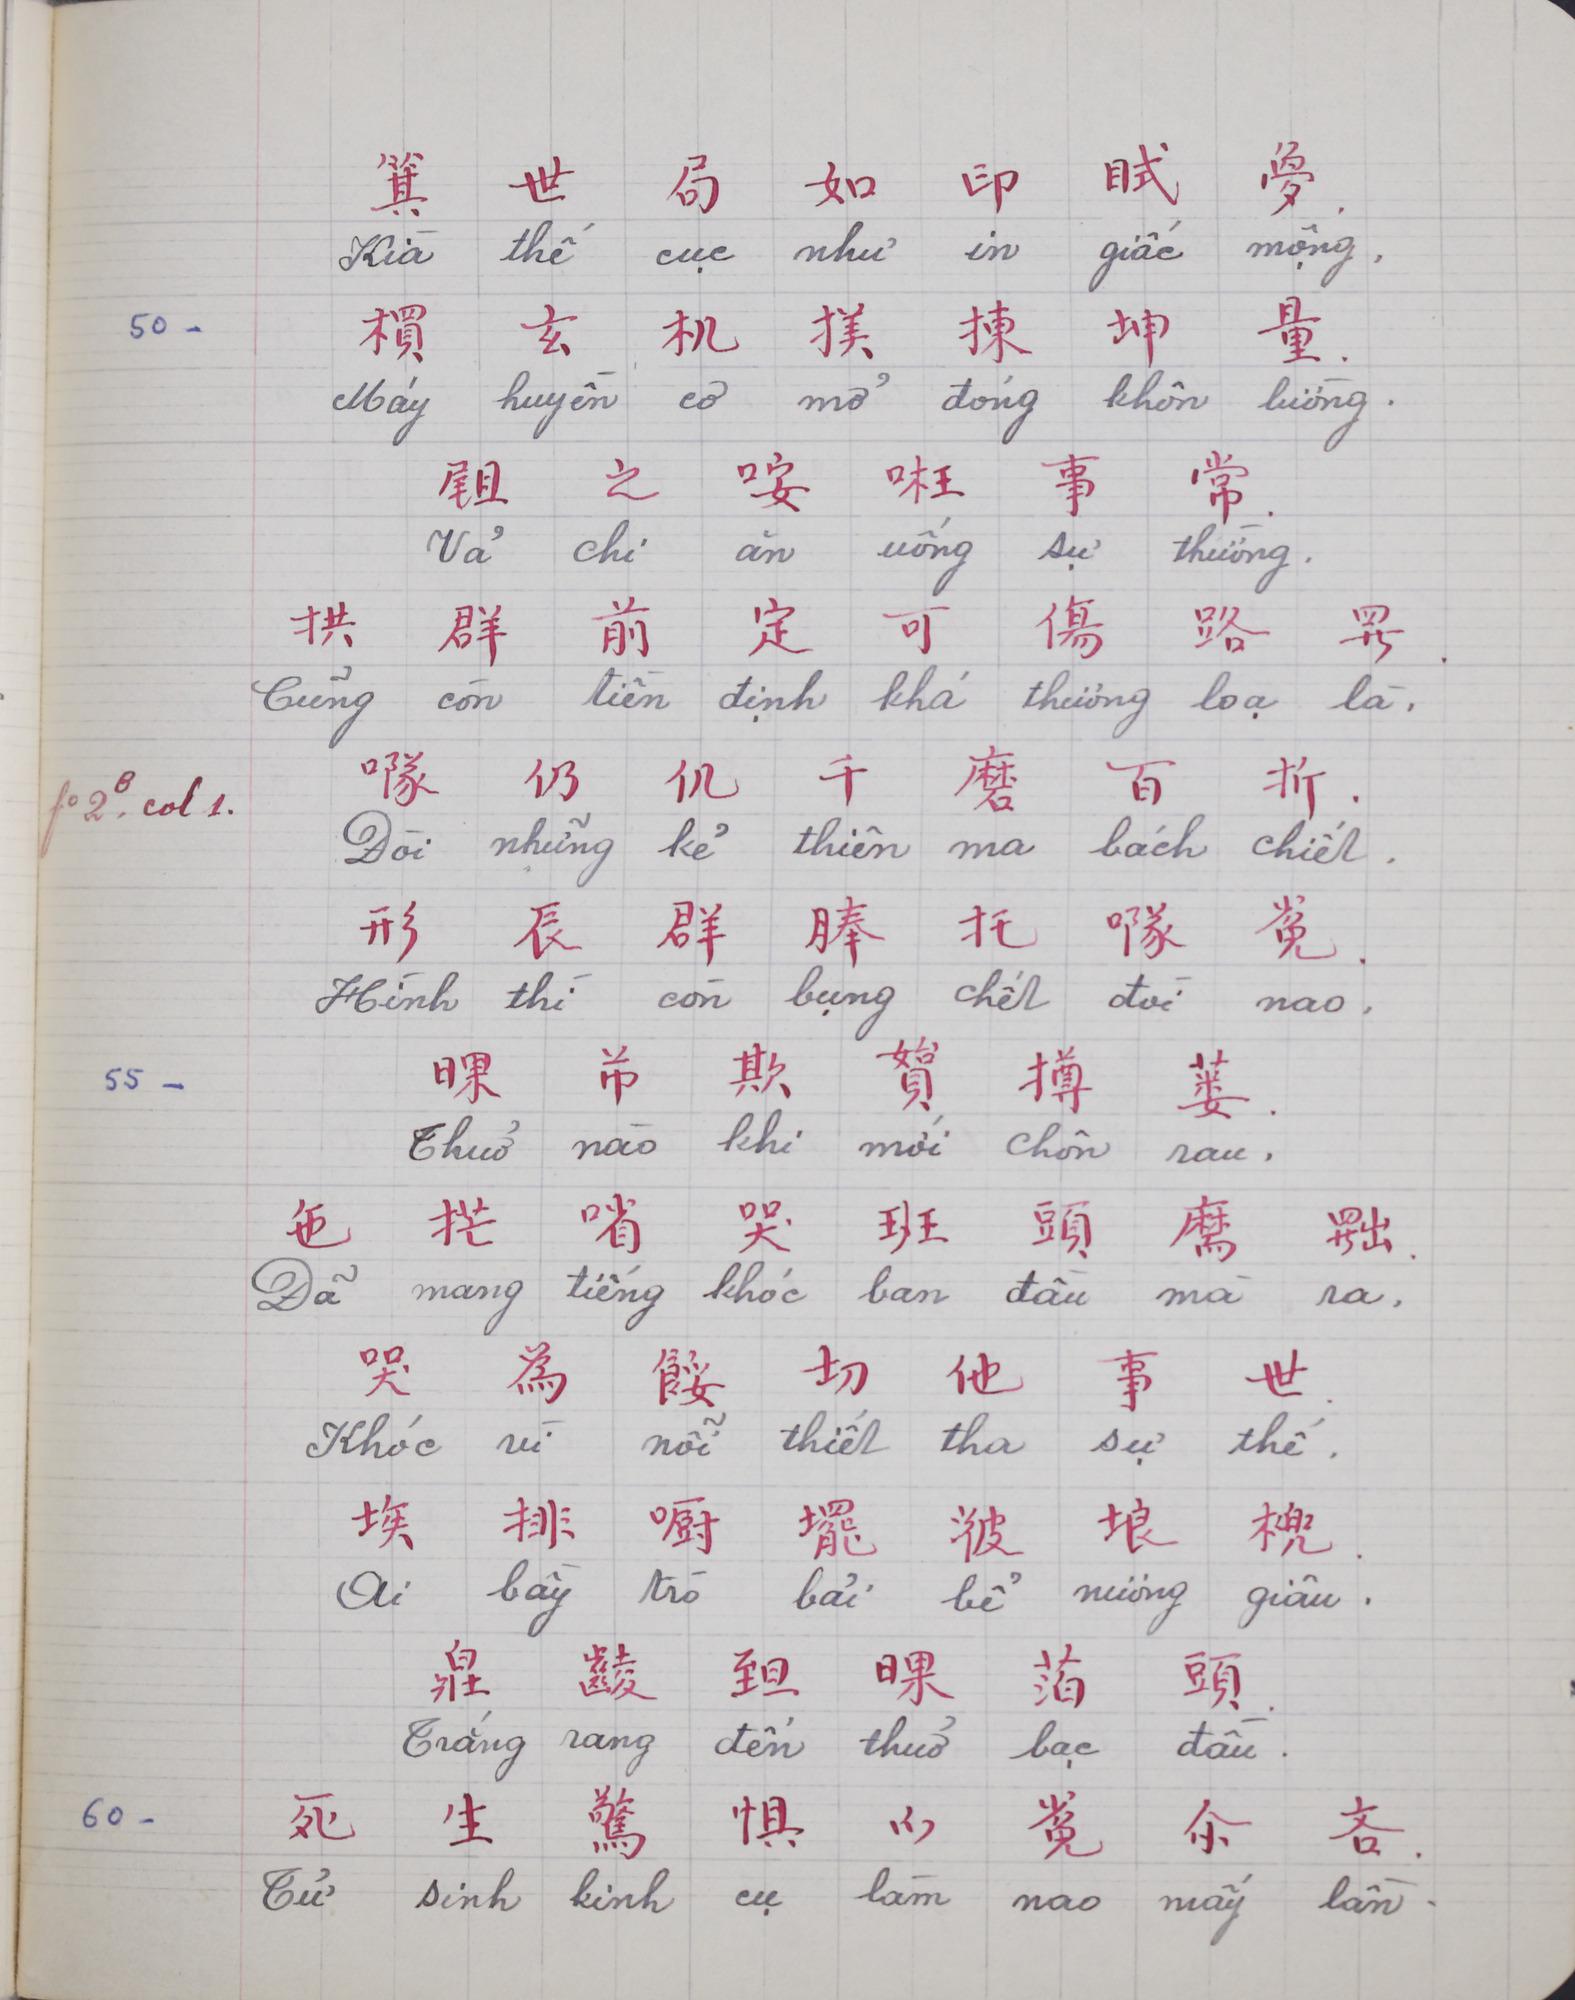 箕 世 局 如 印 䀡 夢.
Kià thế cục như in giấc mộng.
50 - 槓 玄 机 撲 揀 坤 量.
Máy huyền cơ mở đóng khôn lường.
䢐 之 咹 㕵 事 常.
Vả chi ăn uống sự thường.
拱 群 前 定 可 傷 路 𱺵.
Cũng còn tiền định khá thương loạ là.
fo 2B. col 1. 㗂 仍 仉 千 磨 百 折.
Đòi những kẻ thiên ma bách chiết.
形 辰 群 䏾 托 㗂 鴌.
Hình thì còn bụng chết đòi nao.
55 - 𣋾 芇 欺 𧷺 撙 蒌.
Thuở nào khi mới chôn rau.
㐌 㧅 㗂 哭 班 頭 麽 𠚢.
Đã mang tiếng khóc ban đầu mà ra.
哭 為 餒 切 他 事 世.
Khóc vì nỗi thiết tha sự thế.
埃 排 㕑 擺 㴜 埌 槐.
Ai bầy trò bải bể nương giâu.
𤽸 𪘵 𦤾 𣋾 萡 頭.
Trắng rang đến thuở bạc đầu.
60 - 死 生 驚 惧 𫜵 鴌 尒 吝.
Tử sinh kinh cụ làm nao mấy lần.